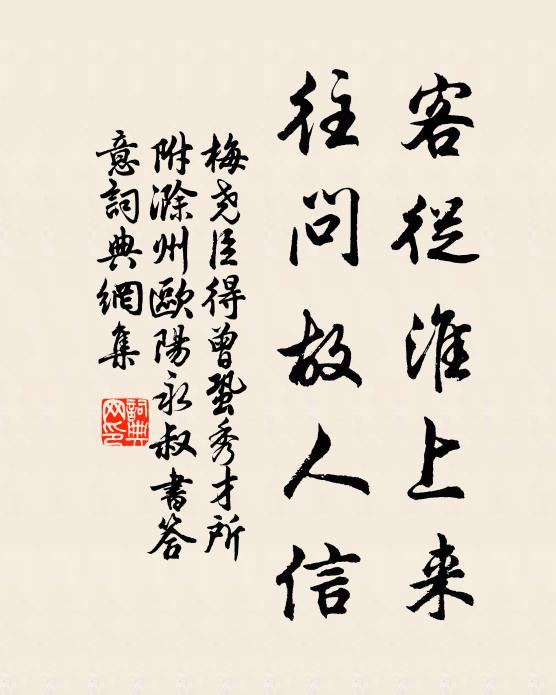 客從淮上来
往問故人信
梅尧臣得曾鞏秀才所
附滁州歐陽永叔書答
意詞典網集
詞典网印